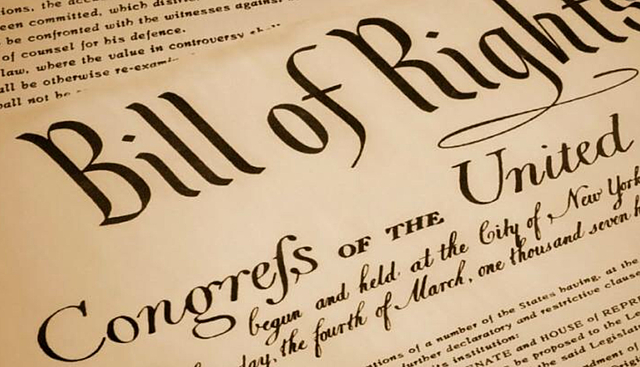 ions, the acc
een committed, which distri
be confronted with the witnesses against
of counsel for his defence.
law, where the value in controversy shall
all be otherwise re-exami
hall not be
Bill of Rights
Congreſs OF THE United
begun and held at the City of New York
day, the fourth of March, one thousand seven h
tions of a number of the States having, at the
further declaratory and restrictive clause
its institution:
NATE and HOUSE of REPR
be proposed to the L
the said Legisla